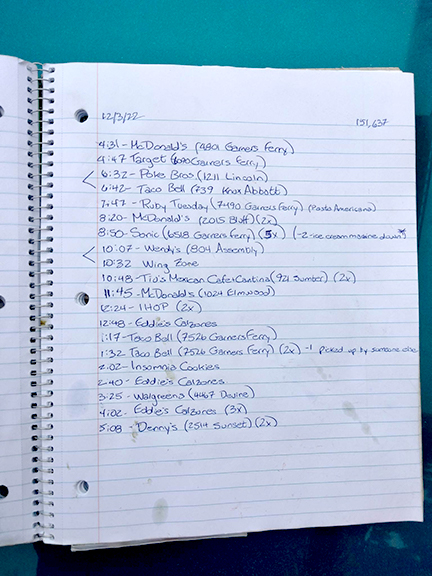 12/3/22 151,637
4:31 - McDonald's (4801 Garners Ferry)
4:47 Target (6090 Garners Ferry)
6:32 - Poke Bros (1211 Lincoln)
6:42 - Taco Bell (739 Knox Abbott)
7:47 - Ruby Tuesday (7490 Garners Ferry) (Pasta Americana)
8:20 - McDonald's (2015 Bluff) (2x)
8:50 - Sonic (6518 Garners Ferry) (5x) (-2 - ice cream machine down)
10:07 - Wendy's (804 Assembly)
10:32 Wing Zone
10:48 - Tio's Mexican Cafe + Cantina (921 Sumter) (2x)
11:45 - McDonald's (1024 Elmwood)
12:24 - IHOP (2x)
12:48 - Eddie's Calzones
1:17 - Taco Bell (7526 Garners Ferry)
1:32 Taco Bell (7526 Garners Ferry) (2x) -1 picked up by someone else
2:02 - Insomnia Cookies
2:40 - Eddie's Calzones
3:25 - Walgreens (4467 Devine)
4:02 - Eddie's Calzones (3x)
5:08 - Denny's (2514 Sunset) (2x)